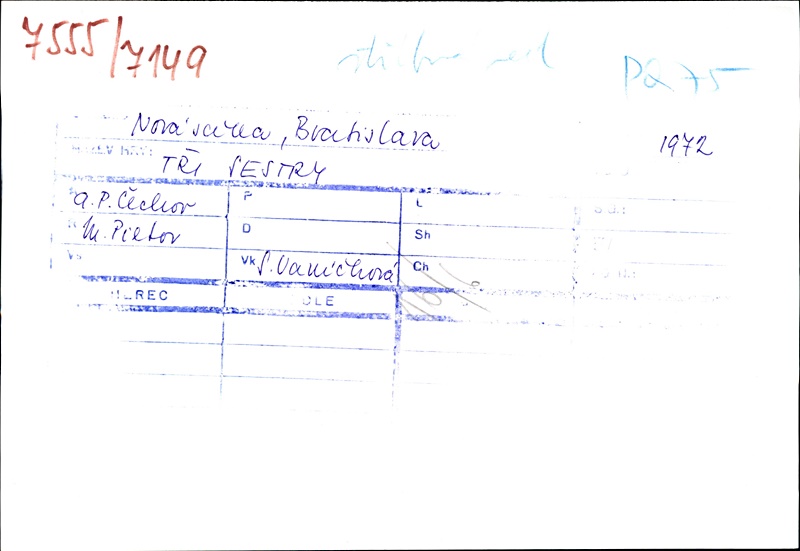 7555/7149
PQ 75
Nová scéna, Bratislava
1972
TŘI SESTRY
A. P. Čechov
P
L
M. Pietor
D
Sh
Vk S. Vaníčková
Ch
HEREC